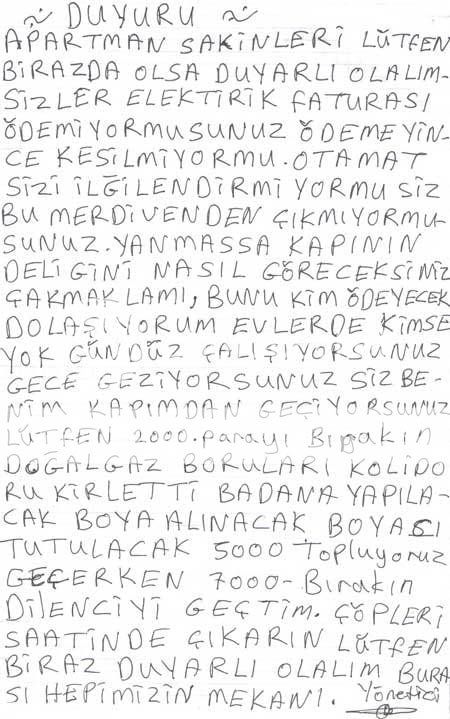 ~ DUYURU ~
APARTMAN SAKİNLERİ LÜTFEN
BİRAZDA OLSA DUYARLI OLALIM-
SİZLER ELEKTİRİK FATURASI
ÖDEMİYORMUSUNUZ ÖDEMEYİN-
CE KESİLMİYORMU. OTAMAT
SİZİ İLĞİLENDİRMİYORMU SİZ
BU MERDİVENDEN ÇIKMIYORMU-
SUNUZ. YANMASSA KAPININ
DELİGİNİ NASIL GÖRECEKSİNİZ
ÇAKMAKLAMI, BUNU KİM ÖDEYECEK
DOLAŞIYORUM EVLERDE KİMSE
YOK GÜNDÜZ ÇALIŞIYORSUNUZ
GECE GEZİYORSUNUZ SİZ BE-
NİM KAPIMDAN GEÇİYORSUNUZ
LÜTFEN 2000. parayı Bırakın
DOĞALGAZ BORULARI KOLİDO
RU KİRLETTİ BADANA YAPILA-
CAK BOYA ALINACAK BOYACI
TUTULACAK 5000 Topluyoruz
GEÇERKEN 7000- Bırakın
DİLENCİYİ GEÇTİM. ÇÖPLERİ
SAATİNDE ÇIKARIN LÜTFEN
BİRAZ DUYARLI OLALIM BURA
SI HEPİMİZİN MEKANI. Yönetici